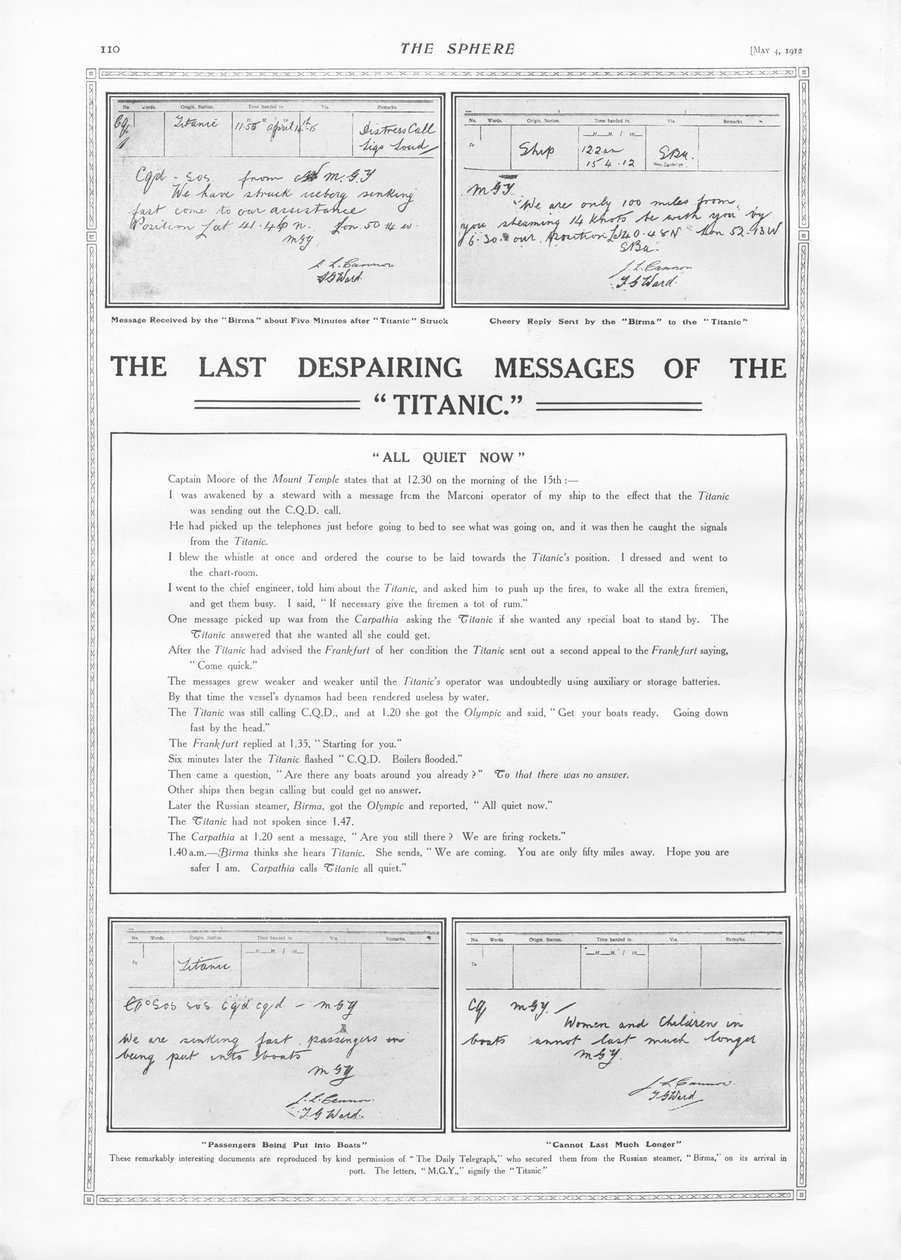 110
THE SPHERE
[MAY 4, 1912
No. Words. Origin. Station. Time handed in. Via. Remarks.
Cq Titanic 11·50 " April 14th-15 Distress Call
Sigs Loud
Cqd - Sos from M.G.Y
We have struck iceberg sinking
fast come to our assistance
Position Lat 41.46 n. Lon 50.14 w
MGY
J. L. Cannon
T G Ward.
Message Received by the "Birma" about Five Minutes after "Titanic" Struck
No. Words. Origin. Station. Time handed in. Via. Remarks.
To Ship 12 2 am SBa.
15·4·12
MGY.
"We are only 100 miles from
you steaming 14 knots be with you by
6.30. our Position Lat 40.48N Lon 52.13W
SBa.
J. L. Cannon
T. G Ward.
Cheery Reply Sent by the "Birma" to the "Titanic"
THE LAST DESPAIRING MESSAGES OF THE
"TITANIC."
"ALL QUIET NOW"
Captain Moore of the Mount Temple states that at 12.30 on the morning of the 15th :—
I was awakened by a steward with a message from the Marconi operator of my ship to the effect that the Titanic
was sending out the C.Q.D. call.
He had picked up the telephones just before going to bed to see what was going on, and it was then he caught the signals
from the Titanic.
I blew the whistle at once and ordered the course to be laid towards the Titanic's position. I dressed and went to
the chart-room.
I went to the chief engineer, told him about the Titanic, and asked him to push up the fires, to wake all the extra firemen,
and get them busy. I said, "If necessary give the firemen a tot of rum."
One message picked up was from the Carpathia asking the Titanic if she wanted any special boat to stand by. The
Titanic answered that she wanted all she could get.
After the Titanic had advised the Frankfurt of her condition the Titanic sent out a second appeal to the Frankfurt saying,
"Come quick."
The messages grew weaker and weaker until the Titanic's operator was undoubtedly using auxiliary or storage batteries.
By that time the vessel's dynamos had been rendered useless by water.
The Titanic was still calling C.Q.D., and at 1.20 she got the Olympic and said, "Get your boats ready. Going down
fast by the head."
The Frankfurt replied at 1.35, "Starting for you."
Six minutes later the Titanic flashed "C.Q.D. Boilers flooded."
Then came a question, "Are there any boats around you already?" To that there was no answer.
Other ships then began calling but could get no answer.
Later the Russian steamer, Birma, got the Olympic and reported, "All quiet now."
The Titanic had not spoken since 1.47.
The Carpathia at 1.20 sent a message, "Are you still there? We are firing rockets."
1.40 a.m.—Birma thinks she hears Titanic. She sends, "We are coming. You are only fifty miles away. Hope you are
safer I am. Carpathia calls Titanic all quiet."
No. Words. Origin. Station. Time handed in. Via. Remarks.
To Titanic
Sos sos cqd cqd - MGY
We are sinking fast passengers
being put into boats
MGY
J. L. Cannon.
T G Ward.
"Passengers Being Put into Boats"
No. Words Origin. Station. Time handed in. Via. Remarks.
To
Cq MGY.
Women and Children in
boats cannot last much longer
MGY.
J. L. Cannon.
T G Ward
"Cannot Last Much Longer"
These remarkably interesting documents are reproduced by kind permission of "The Daily Telegraph," who secured them from the Russian steamer, "Birma," on its arrival in
port. The letters, "M.G.Y.," signify the "Titanic"